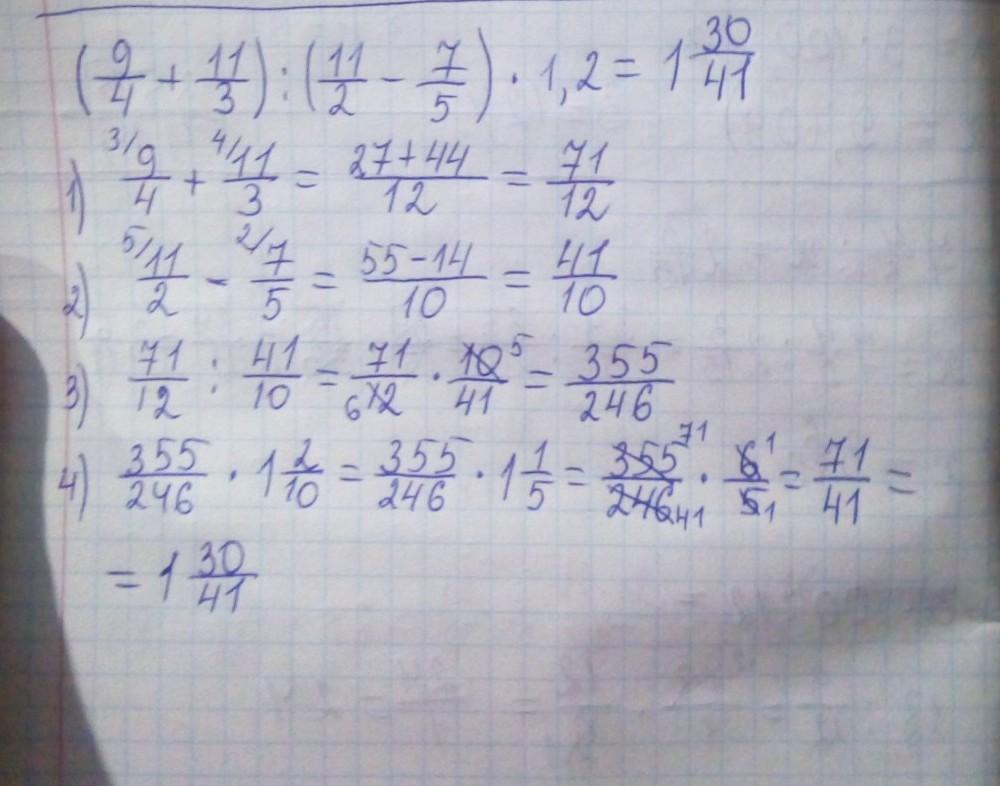 (9/4 + 11/3) : (11/2 - 7/5) · 1,2 = 1 30/41
1) 3/ 9/4 + 4/ 11/3 = 27+44/12 = 71/12
2) 5/ 11/2 - 2/ 7/5 = 55-14/10 = 41/10
3) 71/12 : 41/10 = 71/12 6 · 10 5/41 = 355/246
4) 355/246 · 1 2/10 = 355/246 · 1 1/5 = 355 71/246 41 · 6 1/5 1 = 71/41 =
= 1 30/41